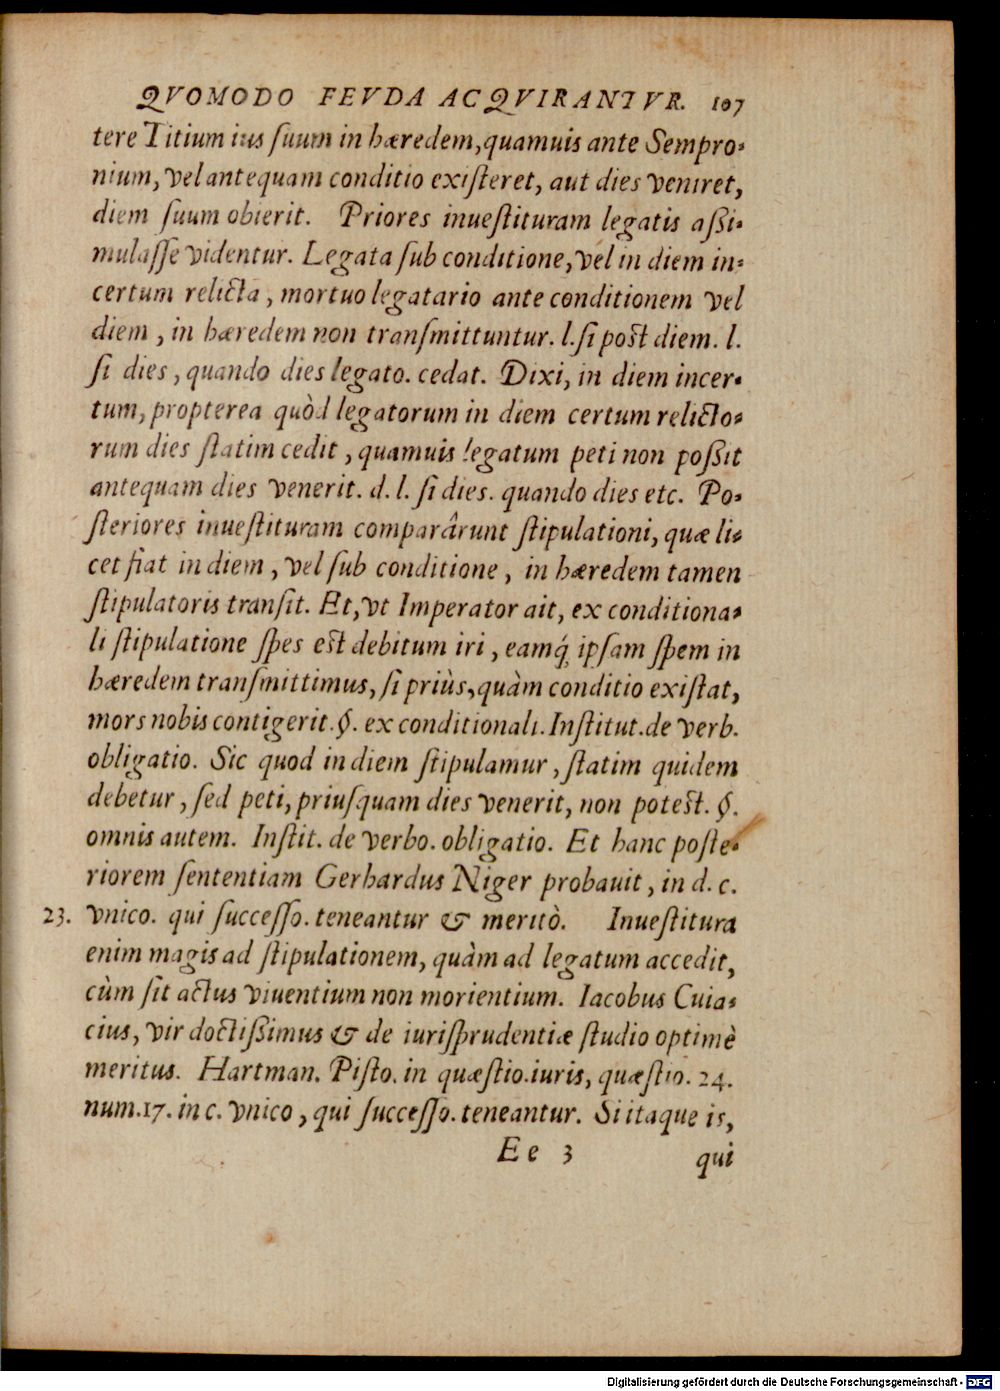 QVOMODO FEVDA ACQVIRANTVR. 107
tere Titium ius ſuum in hæredem, quamuis ante Sempro-
nium, vel antequam conditio exiſteret, aut dies veniret,
diem ſuum obierit. Priores inueſtituram legatis aßi-
mulaſſe videntur. Legata ſub conditione, vel in diem in-
certum relicta, mortuo legatario ante conditionem vel
diem, in hæredem non tranſmittuntur. l. ſi post diem. l.
ſi dies, quando dies legato. cedat. Dixi, in diem incer-
tum, propterea quòd legatorum in diem certum relicto-
rum dies ſtatim cedit, quamuis legatum peti non poßit
antequam dies venerit. d. l. ſi dies. quando dies etc. Po-
ſteriores inueſtituram comparârunt ſtipulationi, quæ li-
cet fiat in diem, vel ſub conditione, in hæredem tamen
ſtipulatoris tranſit. Et, vt Imperator ait, ex conditiona-
li ſtipulatione ſpes est debitum iri, eamq́ ipſam ſpem in
hæredem tranſmittimus, ſi priùs, quàm conditio exiſtat,
mors nobis contigerit. §. ex conditionali. Inſtitut. de verb.
obligatio. Sic quod in diem ſtipulamur, ſtatim quidem
debetur, ſed peti, priuſquam dies venerit, non potest. §.
omnis autem. Inſtit. de verbo. obligatio. Et hanc poſte-
riorem ſententiam Gerhardus Niger probauit, in d. c.
23. vnico. qui ſucceſſo. teneantur & meritò. Inueſtitura
enim magis ad ſtipulationem, quàm ad legatum accedit,
cùm ſit actus viuentium non morientium. Iacobus Cuia-
cius, vir doctißimus & de iuriſprudentiæ ſtudio optimè
meritus. Hartman. Piſto. in quæſtio. iuris, quæſtio. 24.
num. 17. in c. vnico, qui ſucceſſo. teneantur. Si itaque is,
Ee 3 qui
Digitalisierung gefördert durch die Deutsche Forschungsgemeinschaft - DFG